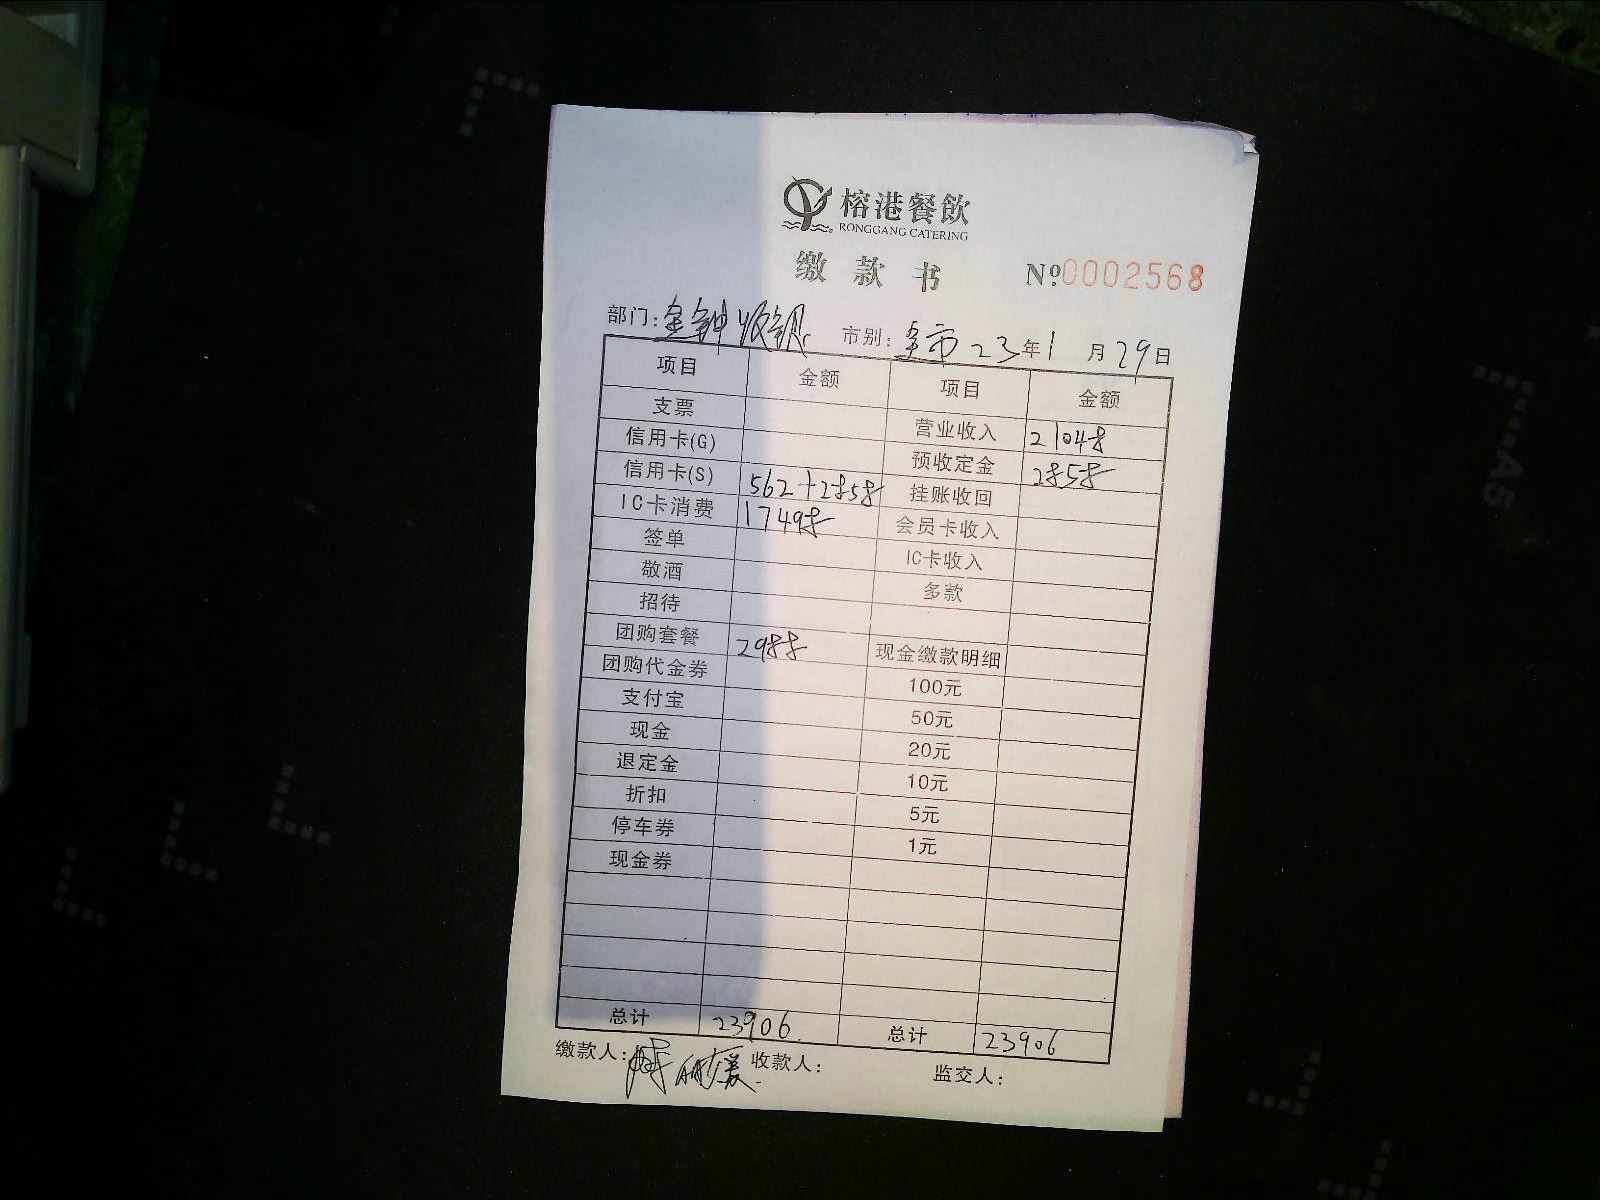 榕港餐飲
RONGGANG CATERING
缴款书 №0002568
部门: 金钟收银 市别: 全市 23年1月29日
项目 金额 项目 金额
支票 营业收入 21048
信用卡(G) 预收定金 2858
信用卡(S) 562+2858 挂账收回
IC卡消费 17498 会员卡收入
签单 IC卡收入
敬酒 多款
招待
团购套餐 2988 现金缴款明细
团购代金券 100元
支付宝 50元
现金 20元
退定金 10元
折扣 5元
停车券 1元
现金券
总计 23906 总计 23906
缴款人: 收款人: 监交人:
A5